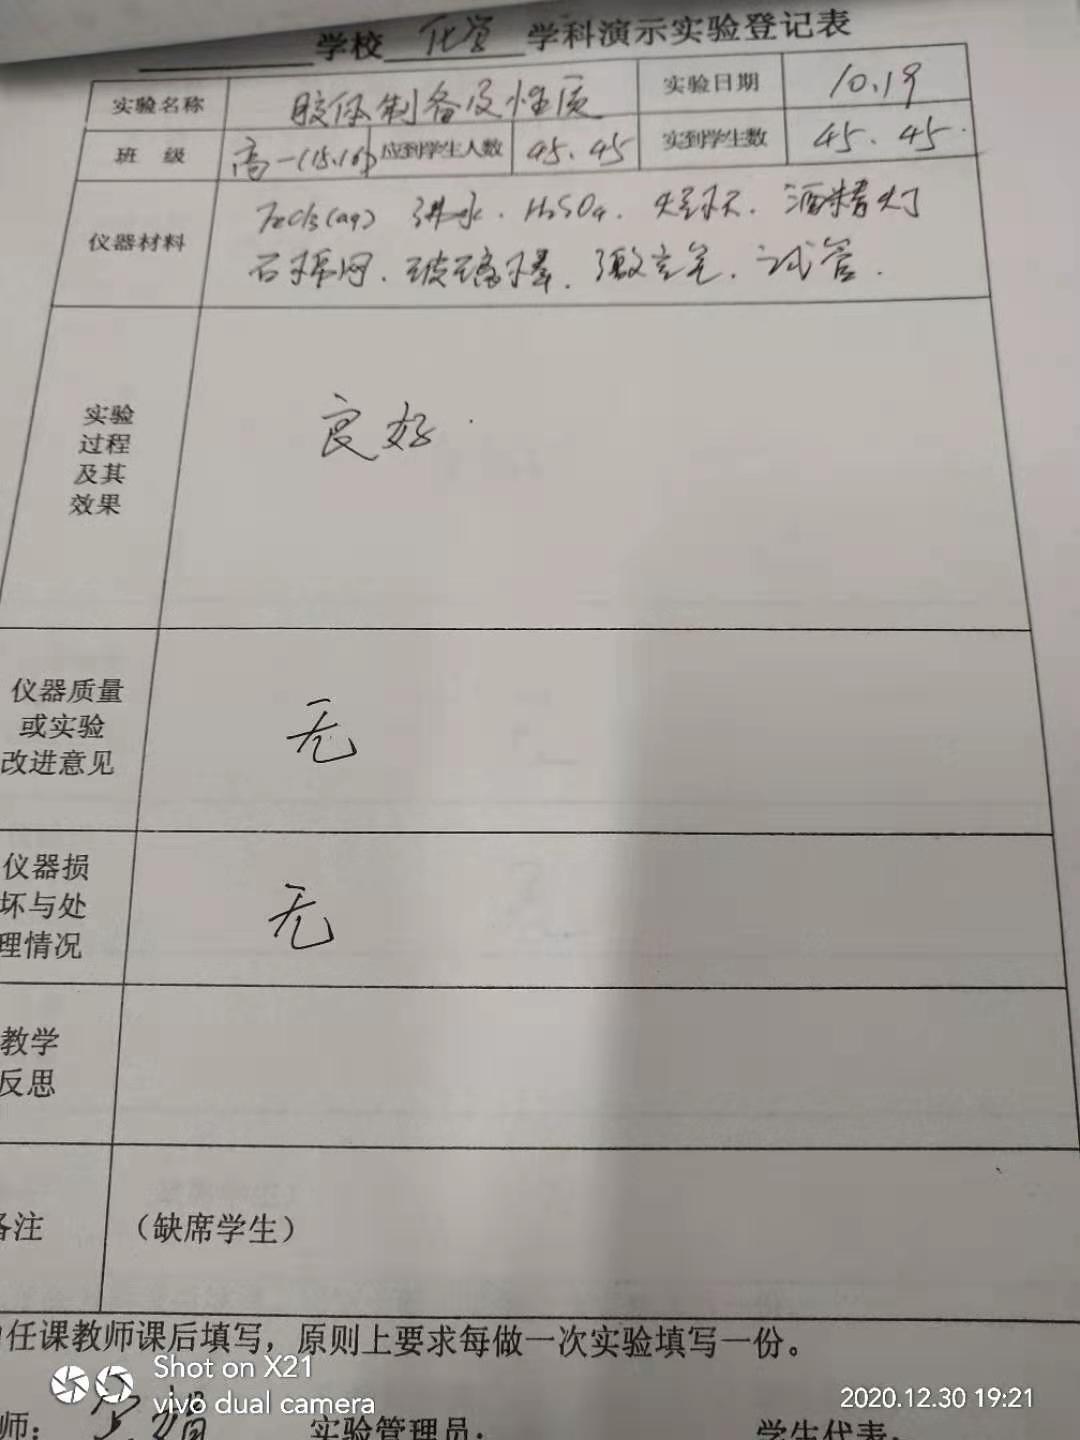 学校 化学 学科演示实验登记表
实验名称 胶体制备及性质 实验日期 10.19
班 级 高一(15.16) 应到学生人数 45.45 实到学生数 45.45.
仪器材料 FeCl3(aq) 沸水. H2SO4. 烧杯. 酒精灯
石棉网. 玻璃棒. 激光笔. 试管.
实验
过程
及其
效果
良好.
仪器质量
或实验
改进意见
无
仪器损
坏与处
理情况
无
教学
反思
备注 (缺席学生)
任课教师课后填写，原则上要求每做一次实验填写一份。
Shot on X21
vivo dual camera
2020.12.30 19:21
师： 实验管理员： 学生代表：